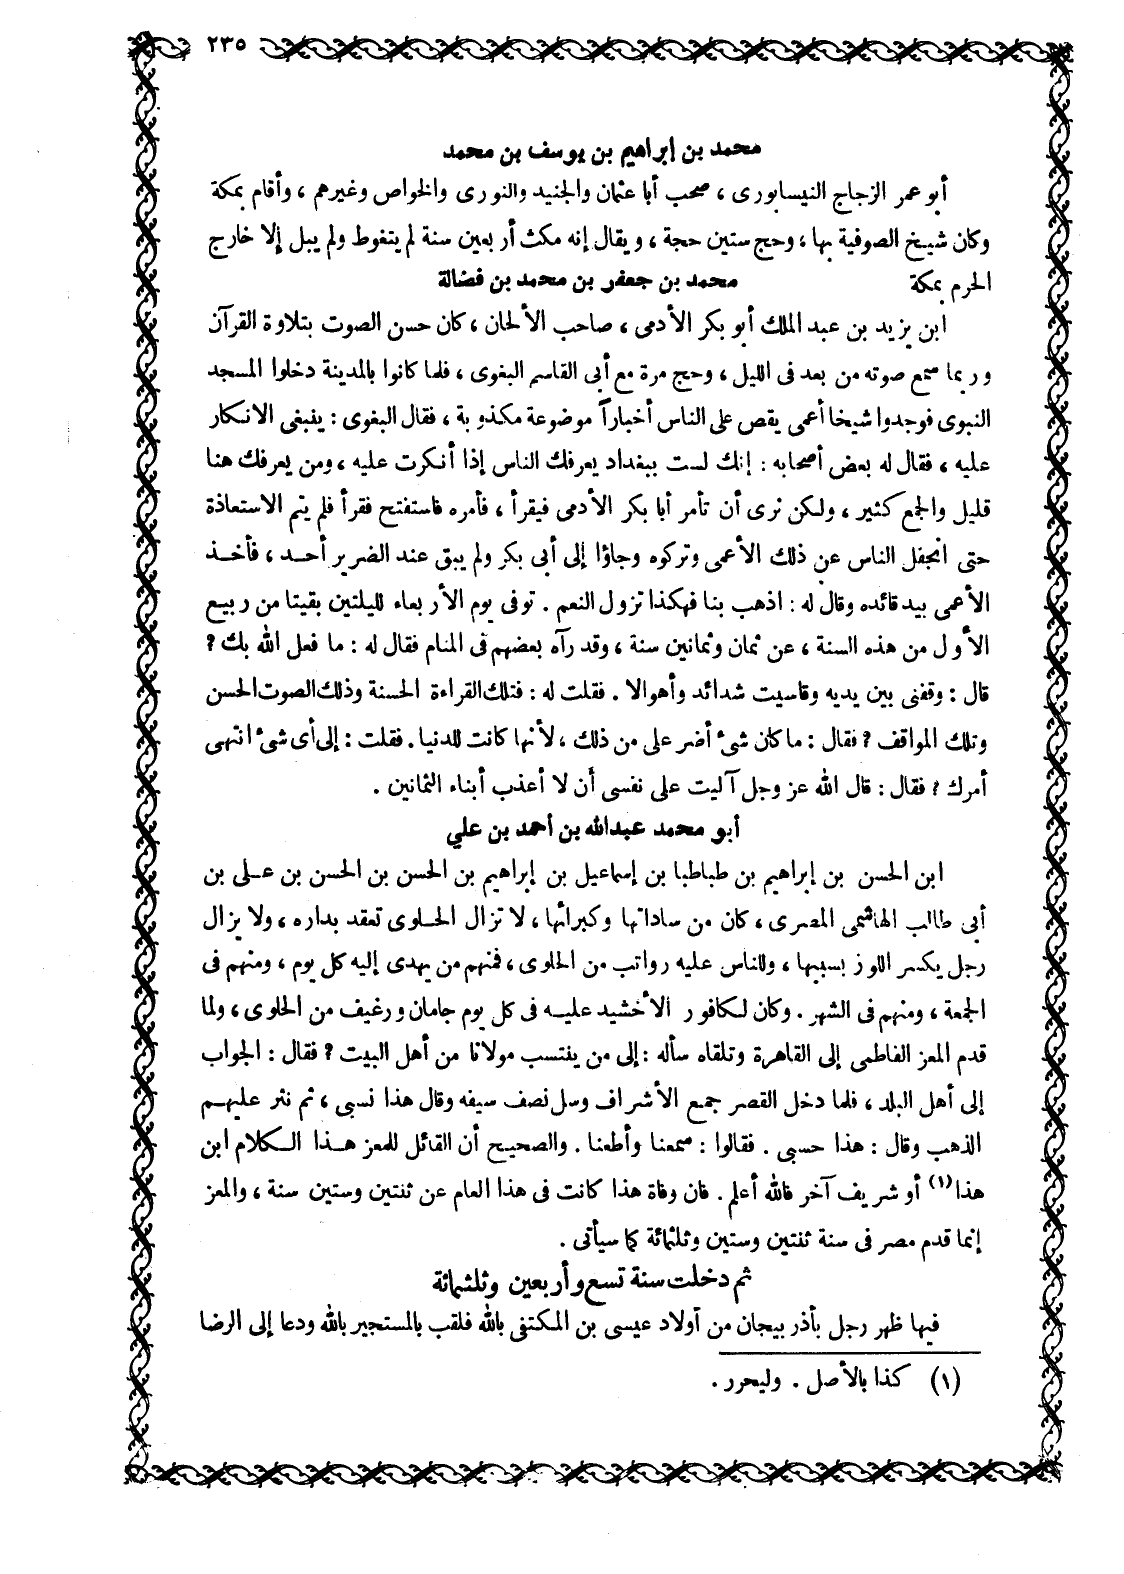 ٢٣٥
محمد بن إبراهيم بن يوسف بن محمد
أبو عمر الزجاج النيسابورى ، صحب أبا عثمان والجنيد والنورى والخواص وغيرهم ، وأقام بمكة
وكان شيخ الصوفية بها ، وحج ستين حجة ، ويقال إنه مكث أربعين سنة لم يتغوط ولم يبل إلا خارج
الحرم بمكة
محمد بن جعفر بن محمد بن فضالة
ابن يزيد بن عبد الملك أبو بكر الأدمى ، صاحب الألحان ، كان حسن الصوت بتلاوة القرآن
وربما سمع صوته من بعد فى الليل ، وحج مرة مع أبى القاسم البغوى ، فلما كانوا بالمدينة دخلوا المسجد
النبوى فوجدوا شيخا أعمى يقص على الناس أخباراً موضوعة مكذوبة ، فقال البغوى : ينبغى الانكار
عليه ، فقال له بعض أصحابه : إنك لست ببغداد يعرفك الناس إذا أنكرت عليه ، ومن يعرفك هنا
قليل والجمع كثير ، ولكن نرى أن تأمر أبا بكر الأدمى فيقرأ ، فأمره فاستفتح فقرأ فلم يتم الاستعاذة
حتى انجفل الناس عن ذلك الأعمى وتركوه وجاؤا إلى أبى بكر ولم يبق عند الضرير أحد ، فأخذ
الأعمى بيد قائده وقال له : اذهب بنا فهكذا تزول النعم . توفى يوم الأربعاء لليلتين بقيتا من ربيع
الأول من هذه السنة ، عن ثمان وثمانين سنة ، وقد رآه بعضهم فى المنام فقال له : ما فعل الله بك ؟
قال : وقفنى بين يديه وقاسيت شدائد وأهوالا . فقلت له : فتلك القراءة الحسنة وذلك الصوت الحسن
وتلك المواقف ؟ فقال : ما كان شىء أضر على من ذلك ، لأنها كانت للدنيا . فقلت : إلى أى شىء انتهى
أمرك ؟ فقال : قال الله عز وجل آليت على نفسى أن لا أعذب أبناء الثمانين .
أبو محمد عبدالله بن أحمد بن علي
ابن الحسن بن إبراهيم بن طباطبا بن إسماعيل بن إبراهيم بن الحسن بن الحسن بن على بن
أبى طالب الهاشمى المصرى ، كان من ساداتها وكبرائها ، لا تزال الحلوى تعقد بداره ، ولا يزال
رجل يكسر اللوز بسببها ، وللناس عليه رواتب من الحلوى ، فمنهم من يهدى إليه كل يوم ، ومنهم فى
الجمعة ، ومنهم فى الشهر . وكان لكافور الأخشيد عليه فى كل يوم جامان ورغيف من الحلوى ، ولما
قدم المعز الفاطمى إلى القاهرة وتلقاه سأله : إلى من ينتسب مولانا من أهل البيت ؟ فقال : الجواب
إلى أهل البلد ، فلما دخل القصر جمع الأشراف وسل نصف سيفه وقال هذا نسبى ، ثم نثر عليهم
الذهب وقال : هذا حسبى . فقالوا : سمعنا وأطعنا . والصحيح أن القائل للمعز هذا الكلام ابن
هذا (١) أو شريف آخر فالله أعلم . فان وفاة هذا كانت فى هذا العام عن ثنتين وستين سنة ، والمعز
إنما قدم مصر فى سنة ثنتين وستين وثلثمائة كما سيأتى .
ثم دخلت سنة تسع وأربعين وثلثمائة
فيها ظهر رجل بأذربيجان من أولاد عيسى بن المكتفى بالله فلقب بالمستجير بالله ودعا إلى الرضا
(١) كذا بالأصل . وليحرر .